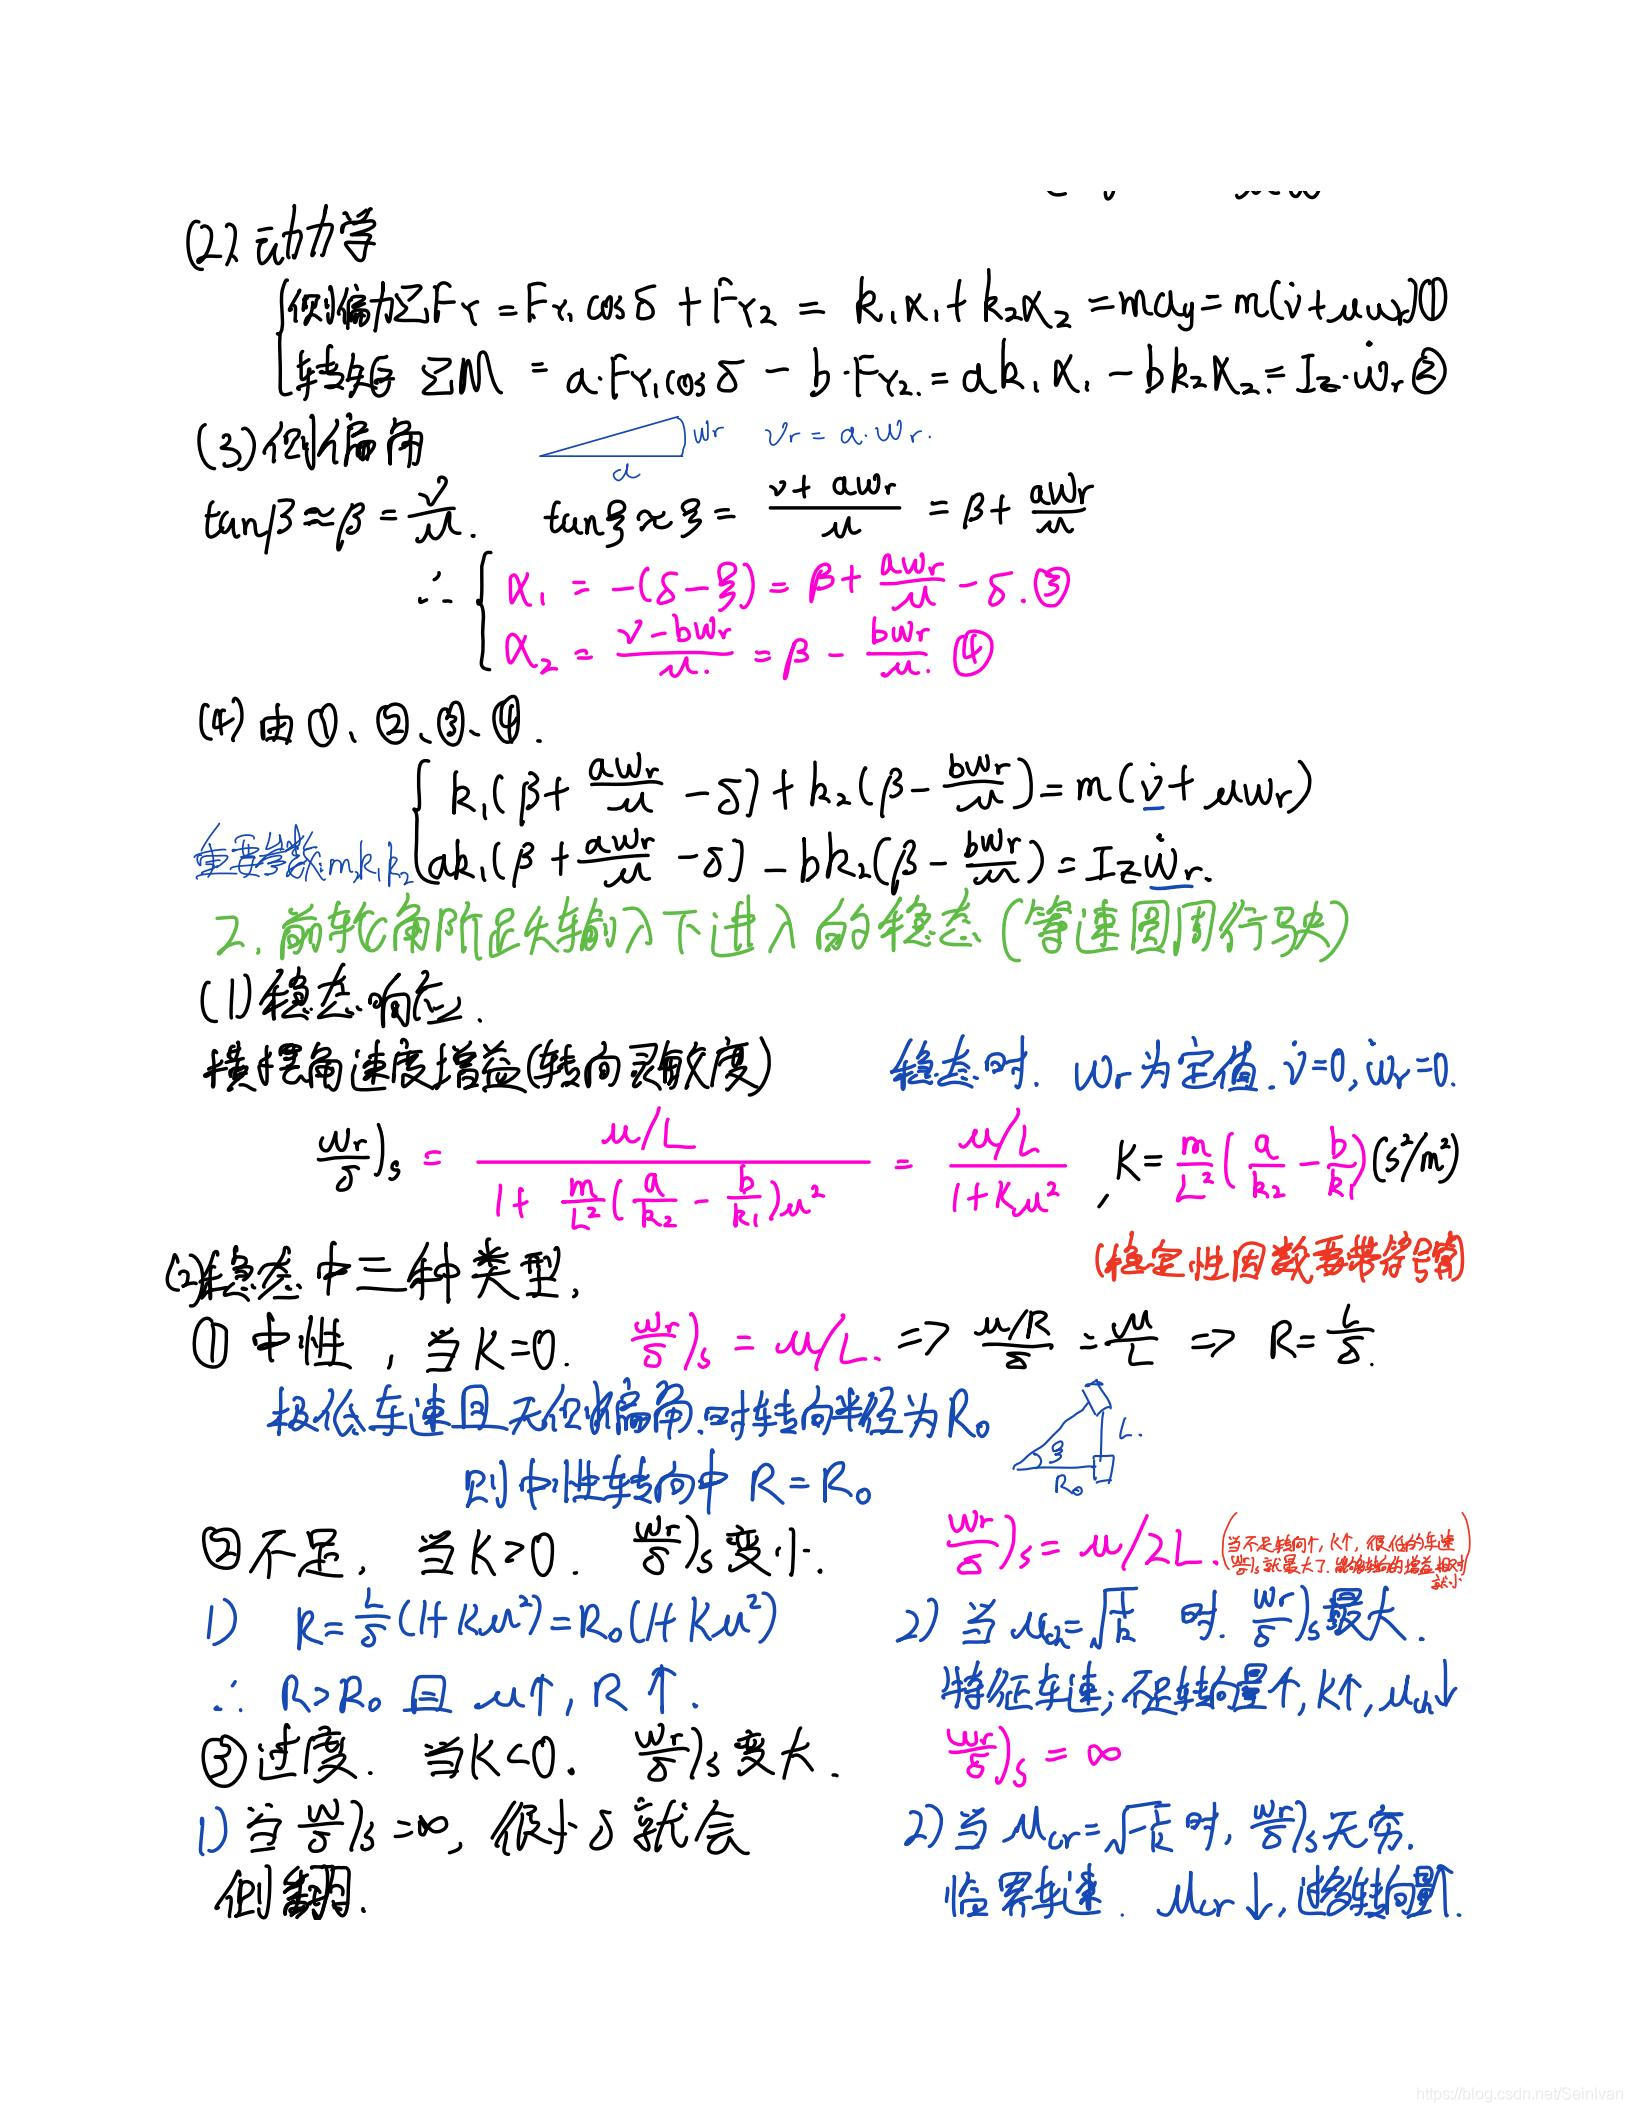 (2). 动力学
侧偏力ΣFY = FY1 cosδ + FY2 = k1α1 + k2α2 = may = m(v̇+uωr) ①
转矩 ΣM = a·FY1cosδ - b·FY2. = ak1α1 - bk2α2. = Iz·ω̇r ②
(3) 侧偏角 wr a vr = a·wr.
tanβ≈β = v/u. tanξ≈ξ = (v+awr)/u = β + awr/u
∴ { α1 = -(δ-ξ) = β + awr/u - δ. ③
α2 = (v-bwr)/u. = β - bwr/u. ④
(4) 由 ①、②、③、④.
k1(β + awr/u - δ) + k2(β - bwr/u) = m(v̇ + uwr)
重要参数: m, k1 k2 ak1(β + awr/u - δ) - bk2(β - bwr/u) = Izẇr.
2. 前轮角阶跃输入下进入的稳态 (等速圆周行驶)
(1) 稳态响应.
横摆角速度增益 (转向灵敏度) 稳态时. wr 为定值. v̇=0, ẇr=0.
wr/δ)s = (u/L)/(1 + m/L²(a/k2 - b/k1)u²) = (u/L)/(1+Ku²), K = m/L²(a/k2 - b/k1)(s²/m²)
(2) 稳态中三种类型. (稳定性因数要带符号)
① 中性, 当K=0. wr/δ)s = u/L. => (u/R)/δ = u/L => R = L/δ.
极低车速且无侧偏角.时转向半径为R0 ξ L. R0
则中性转向中 R = R0
② 不足, 当K>0. wr/δ)s 变小. wr/δ)s = u/2L. (当不足转向↑, K↑, 很低的车速
wr/δ)s 就最大了. 转向的增益相对
就小)
1) R = L/δ(1+Ku²) = R0(1+Ku²) 2) 当 uch = √(1/K) 时. wr/δ)s 最大.
∴ R>R0 且 u↑, R↑. 特征车速; 不足转向量↑, K↑, uch↓
③ 过度. 当K<0. wr/δ)s 变大. wr/δ)s = ∞
1) 当 w/δ)s = ∞, 很小δ就会 2) 当 ucr = √(-1/K) 时, wr/δ)s 无穷.
侧翻. 临界车速. ucr↓, 过多转向量↑.
https://blog.csdn.net/SeinIvan